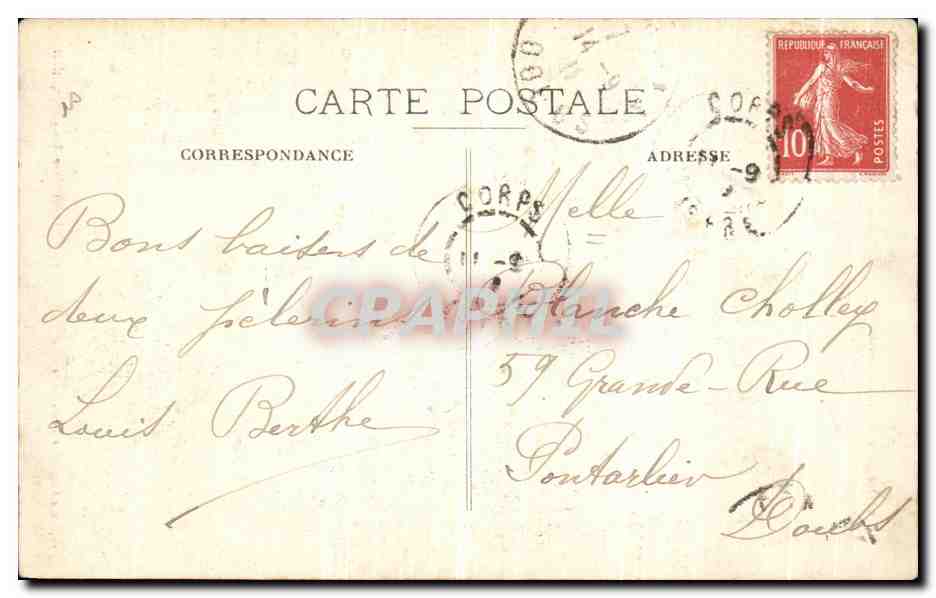 CARTE POSTALE
CORRESPONDANCE
ADRESSE
REPUBLIQUE FRANÇAISE
10
POSTES
CORPS
-9
CORPS
-9
Bons baisers de
deux pèlerins
Louis Berthe
Melle
Blanche Cholley
59 Grande-Rue
Pontarlier
Doubs
CPAPHIL